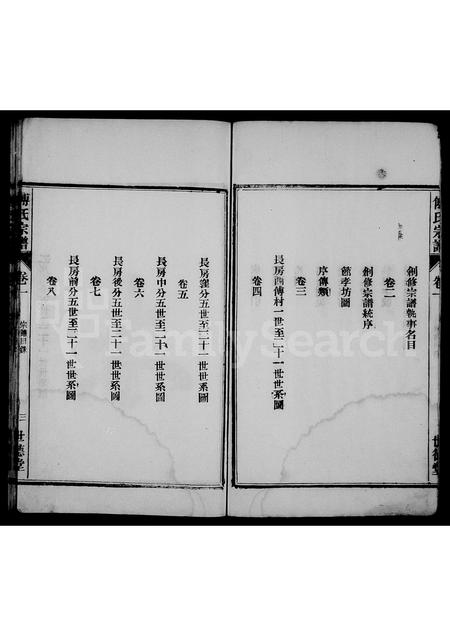 傅氏宗譜
卷一
世德堂
創修宗譜執事名目
卷二
創修宗譜統序
節孝坊圖
序傳類
卷三
長房西傅村一世至二十一世世系圖
卷四
長房窪分五世至二十一世世系圖
卷五
長房中分五世至二十一世世系圖
卷六
長房後分五世至二十一世世系圖
卷七
長房前分五世至二十一世世系圖
卷八
傅氏宗譜
卷一
宗譜目錄
三
世德堂
FamilySearch